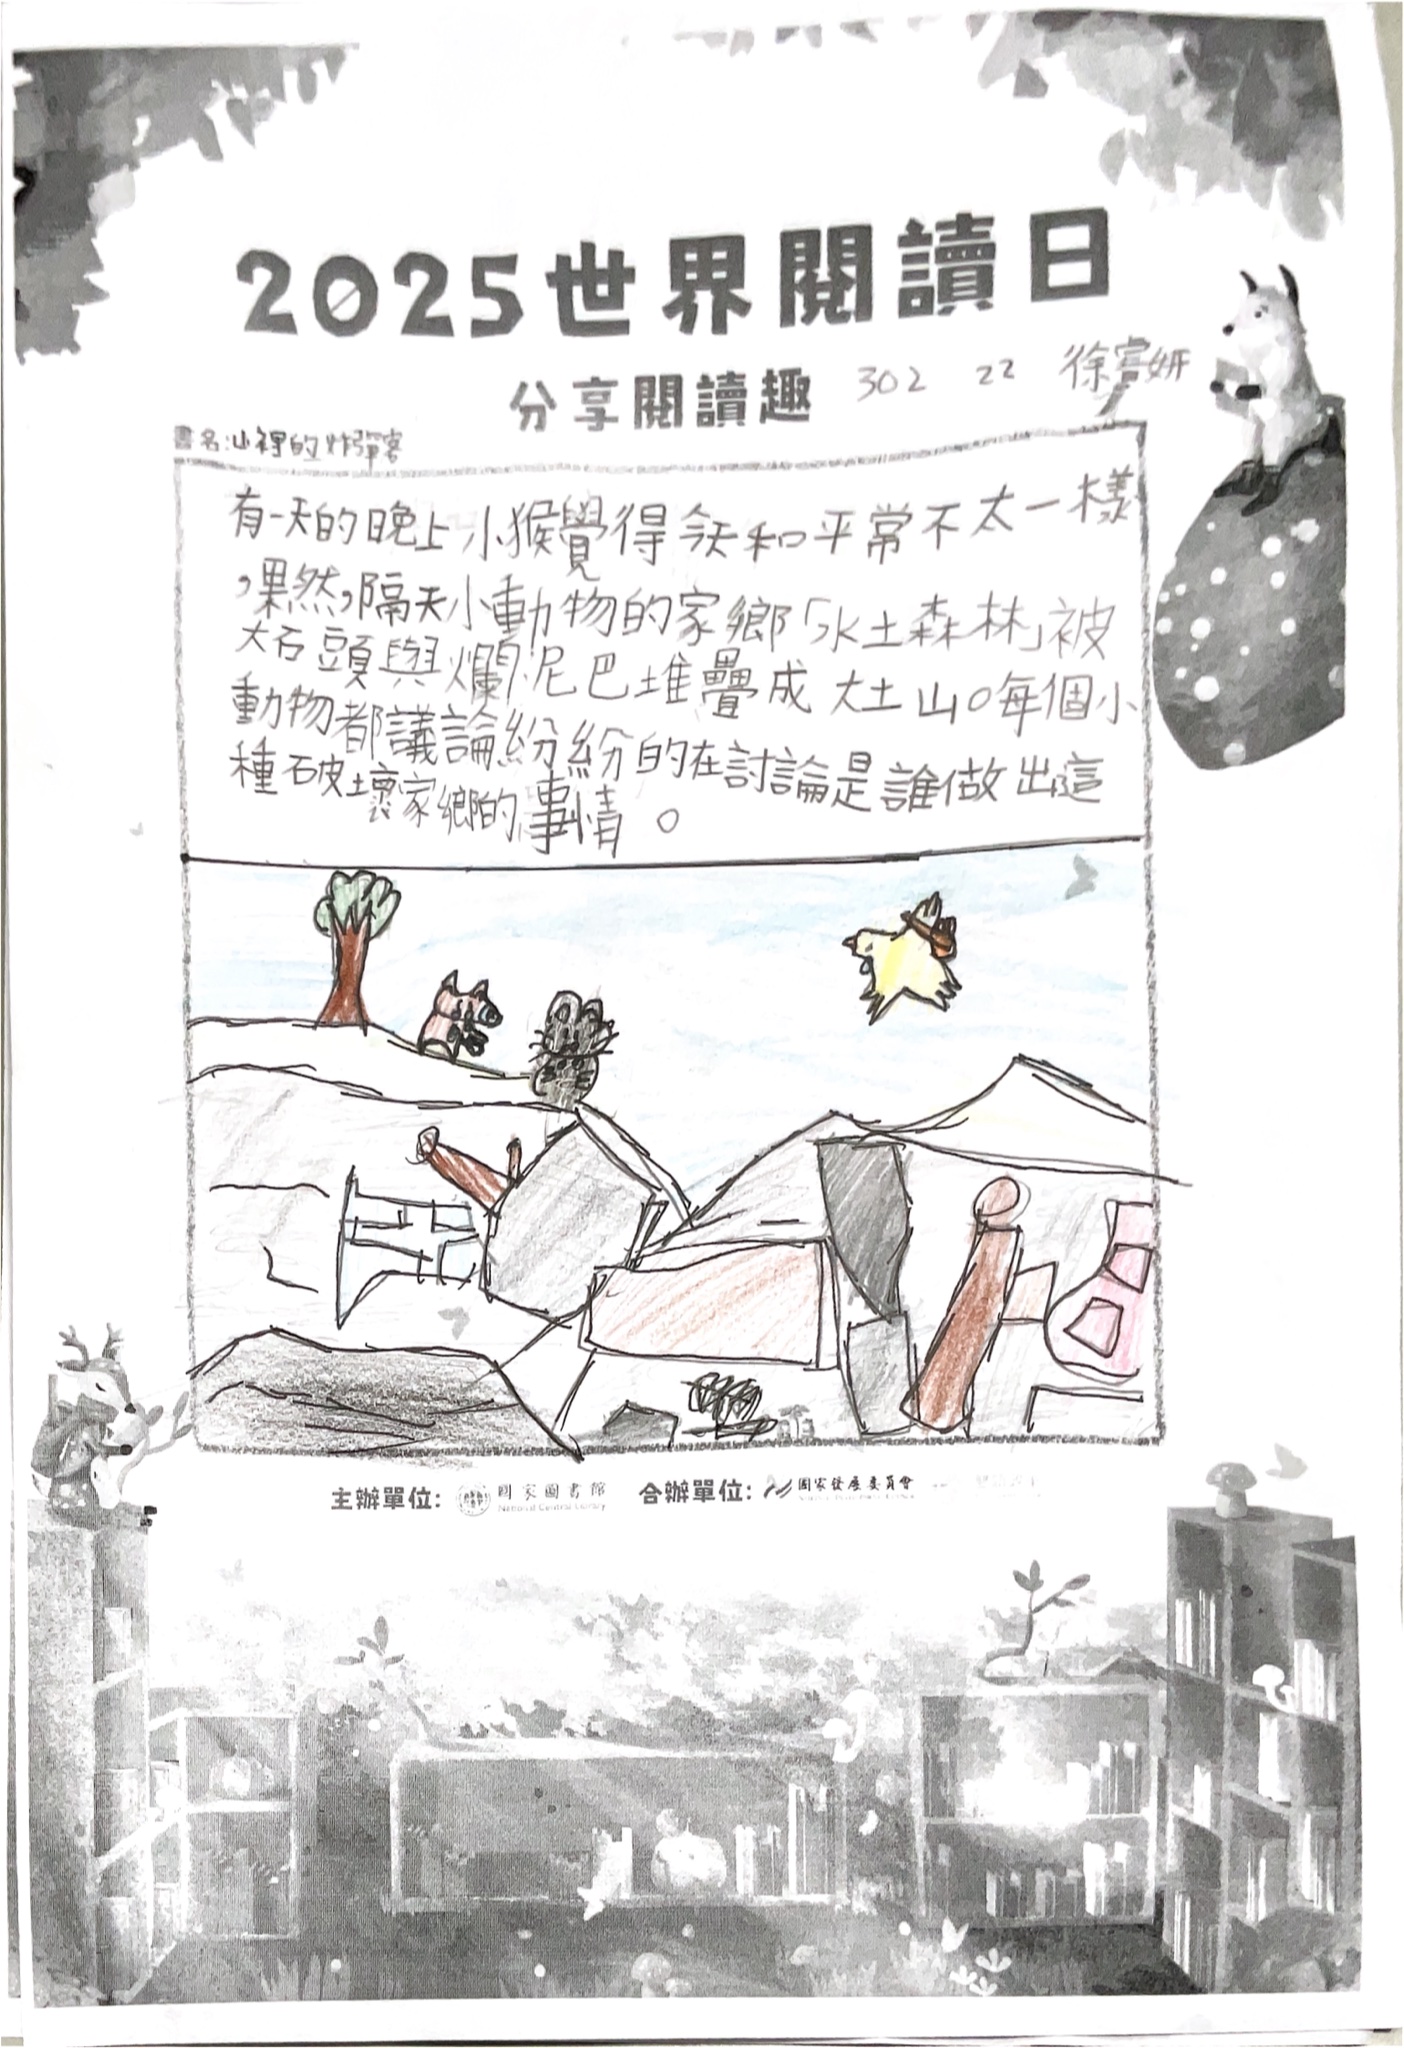 2025世界閱讀日
分享閱讀趣 302 22 徐睿妍
書名:山裡的炸彈客
有一天的晚上小猴覺得今天和平常不太一樣
,果然,隔天小動物的家鄉「水土森林」被
大石頭與爛泥巴堆疊成大土山。每個小
動物都議論紛紛的在討論是誰做出這
種破壞家鄉的事情。
主辦單位: 國家圖書館 合辦單位: 國家發展委員會
National Central Library